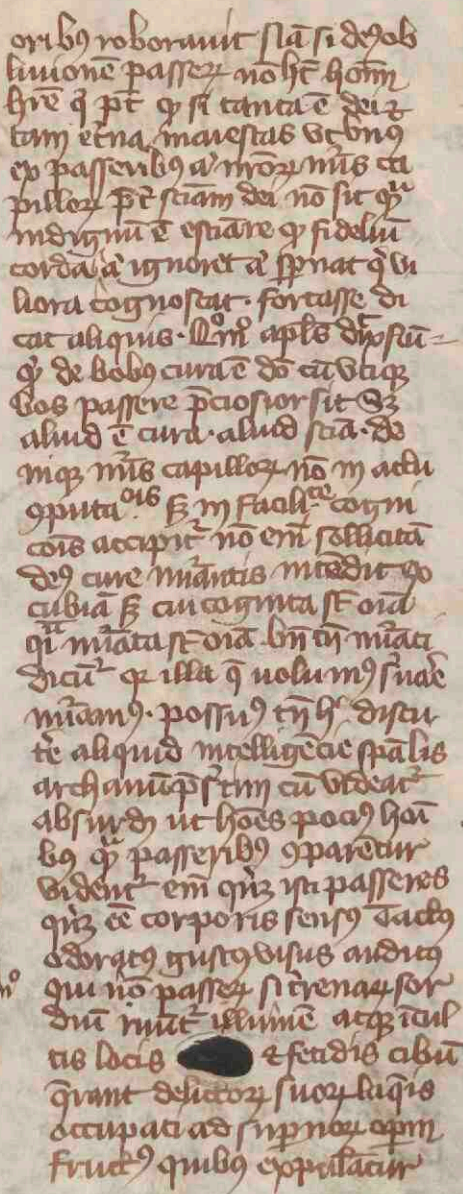 orib⁹ roborauit Nā si de⁹ ob
liuionē passeꝝ nō hꝫ hom̄
hr̄e q̇ pt̄ ꝙ si tanta ē dei ⁊
tam et̓na maiestas vt vn⁹
ex passerib⁹ a᷑ nr̄oꝝ nu᷑s ca
pilloꝝ p̄t̓ sciam dei nō sit qᷓ
indignū ē estiare ꝙ fideliū
corda a᷑ ignoret a᷑ sp̓nat q̇ vi
liora cognoscat · fortasse di
cat aliquis · Qᷓm̊ apl̄s dix̓ nū-
qͥ de bob⁹ cura ē dō cū vtiqꝫ
bos passere p̄ciosior sit Sꝫ
aliud ē cura · aliud scīa · de
niqꝫ nu᷑s capilloꝝ nō in actu
ꝯputaōis sꝫ in facilitate cogni
cōis accipit᷑ nō em̄ sollicitā
de⁹ cure nūantis intēdit ex
cubiā sꝫ cui cognita st̄ oīa
qᷓ nūata st̄ oīa · bn̄ tn̄ nūati
dicūt᷑ qꝛ illa q̄ volum⁹ s̓uare
nūam⁹ · possu⁹ tn̄ hͥ discu
t̓e aliquid intelligēcie sp̄alis
archanū p̄s̓tim cū videat᷑
absurdū ut hōes poci⁹ hoī
b⁹ qᷓ passerib⁹ ꝯparentur
vident᷑ em̄ qn̓qꝫ isti passeres
qn̓qꝫ eē corporis sens⁹ tact⁹
odorat⁹ gust⁹ visus audit⁹
qui nō passeꝝ si t̓renaꝝ sor
diū illuuiē atqꝫ icul
tis locis ⁊ fetidis cibū
q̄rant delictoꝝ suoꝝ laq̄is
occupati ad sup̓noꝝ opm̄
fruct⁹ quibus expilantur